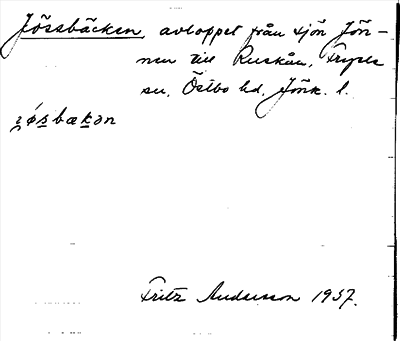 Jössbäcken avloppet från sjön Jön-
nen till Ruskån, Fryele
sn, Östbo hd, Jönk. l.
jøsbækən
Fritz Andersson 1937.